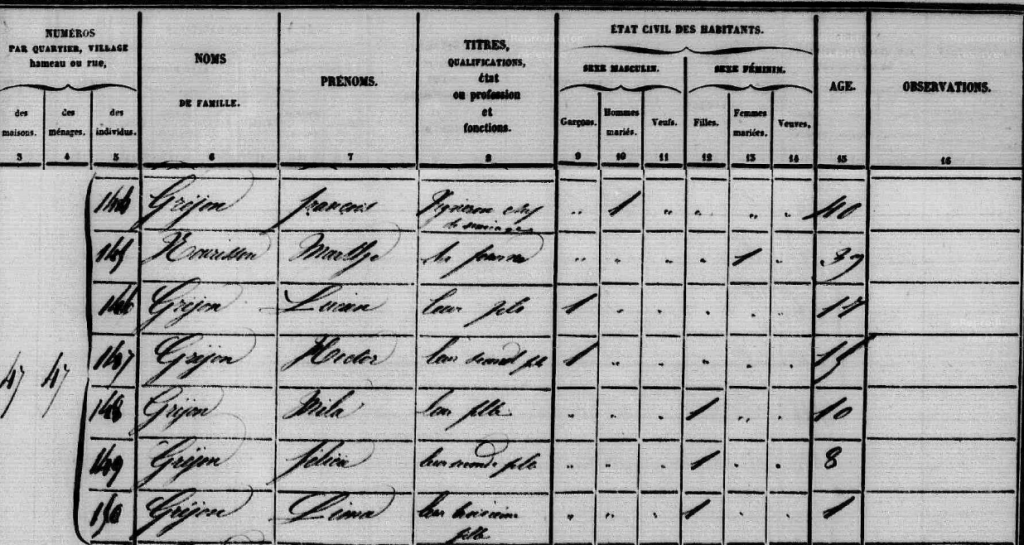 NUMÉROS
PAR QUARTIER, VILLAGE
hameau ou rue,
des maisons.
des ménages.
des individus.
NOMS
DE FAMILLE.
PRÉNOMS.
TITRES,
QUALIFICATIONS,
état
ou profession
et
fonctions.
ÉTAT CIVIL DES HABITANTS.
SEXE MASCULIN.
SEXE FÉMININ.
Garçons.
Hommes mariés.
Veufs.
Filles.
Femmes mariées.
Veuves.
AGE.
OBSERVATIONS.
3 4 5 6 7 8 9 10 11 12 13 14 15 16
Gréjon françois Vigneron chef de ménage " 1 " " " " 40
145 Nourisson Marthe sa femme " " " " 1 " 39
146 Gréjon Lucien leur fils 1 " " " " " 17
47 47 147 Gréjon Hector leur second fils 1 " " " " " 15
148 Gréjon Mila leur fille " " " 1 " " 10
149 Gréjon félicia leur seconde fille " " " 1 " " 8
150 Gréjon leur troisième fille " " " 1 " " 1